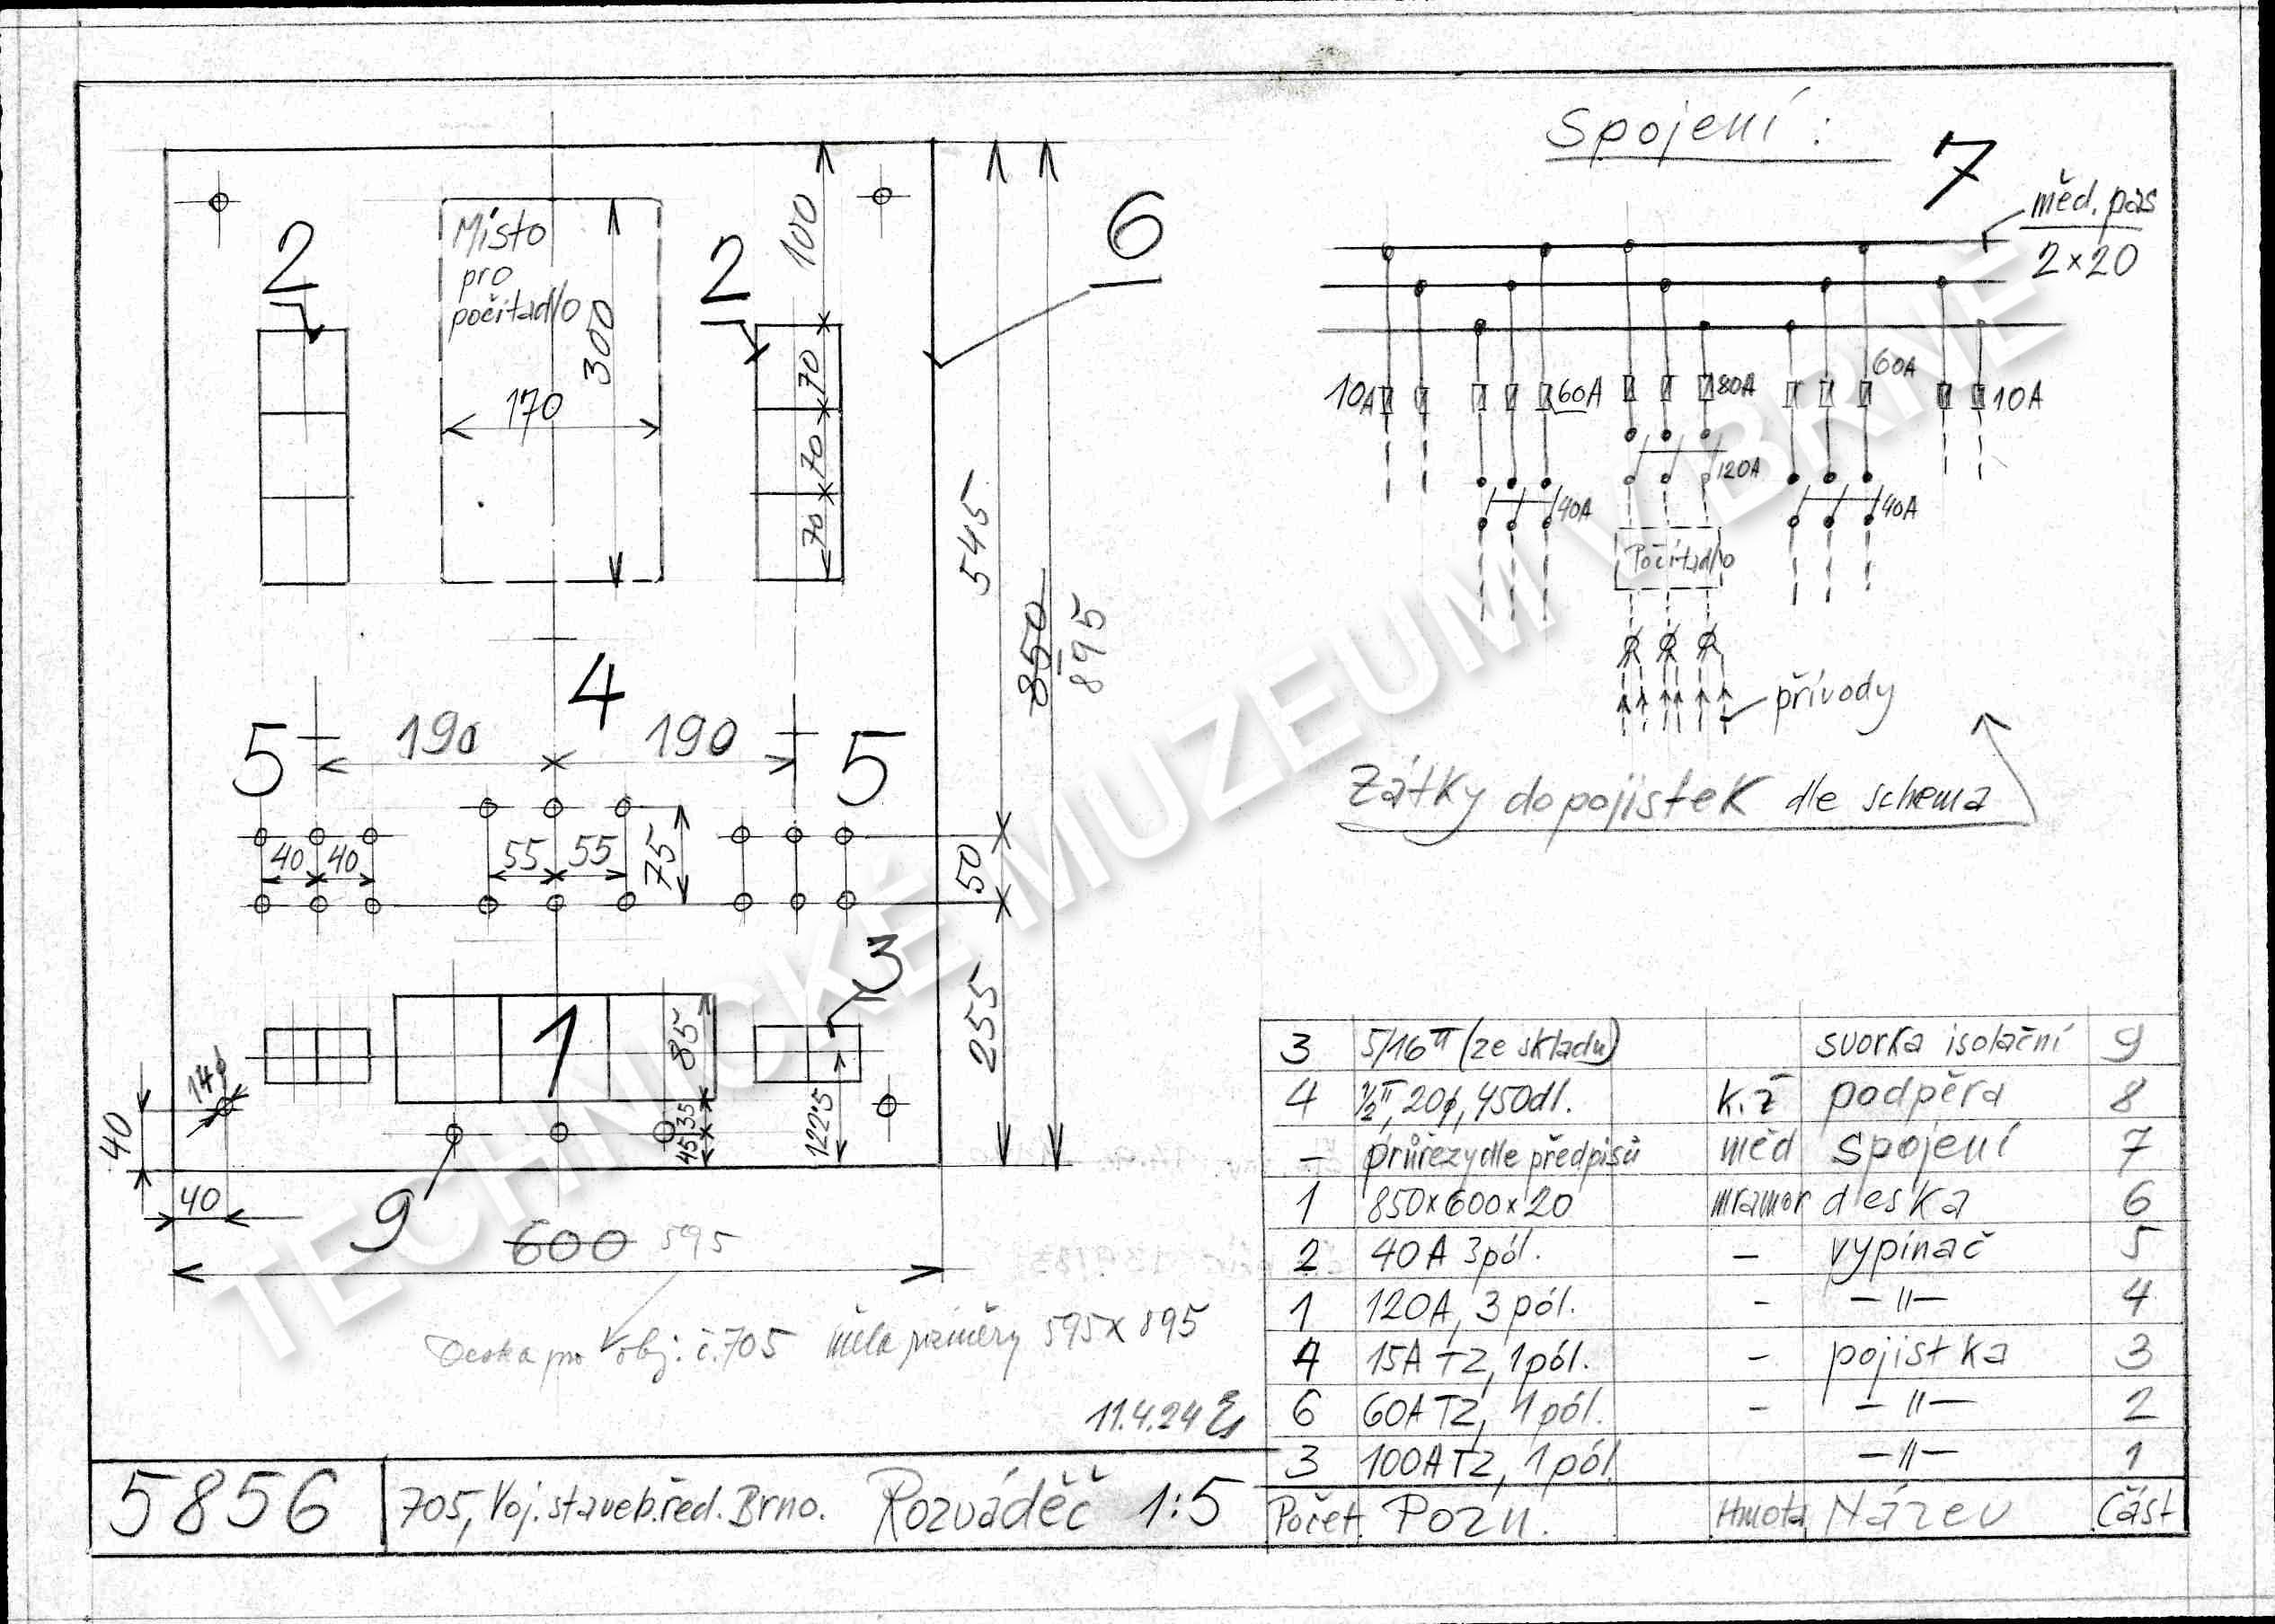 Spojení :
7
měd. pas
2×20
6
100
2
Místo
pro
počítadlo
300
2
170
70
70
70
10A
60A
80A
60A
10A
120A
40A
40A
Počítadlo
přívody
Zátky do pojistek dle schema
545
850
895
4
5
190
190
5
40
40
55
55
75
50
3
1
85
255
14ϕ
35
45
122·5
40
40
9
600 595
Deska pro obj: č.705 měla rozměry 595×895
11.4.24
3 5/16" (ze skladu) svorka isolační 9
4 ½", 20ϕ, 450dl. k.ž podpěra 8
– průřezy dle předpisů měd spojení 7
1 850×600×20 mramor deska 6
2 40A 3pól. – vypínač 5
1 120A, 3pól. – –〃– 4
4 15A TZ, 1pól. – pojistka 3
6 60A TZ, 1pól. – –〃– 2
3 100A TZ, 1pól. –〃– 1
Počet Pozn. Hmota Název Část
5856 705, Voj. staveb. řed. Brno. Rozváděč 1:5
TECHNICKÉ MUZEUM V BRNĚ